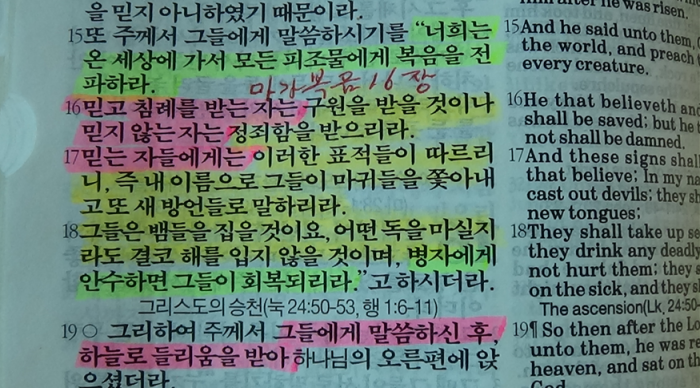 을 믿지 아니하였기 때문이라.
15또 주께서 그들에게 말씀하시기를 “너희는
온 세상에 가서 모든 피조물에게 복음을 전
파하라.
마가복음 16장
16믿고 침례를 받는 자는 구원을 받을 것이나
믿지 않는 자는 정죄함을 받으리라.
17믿는 자들에게는 이러한 표적들이 따르리
니, 즉 내 이름으로 그들이 마귀들을 쫓아내
고 또 새 방언들로 말하리라.
18그들은 뱀들을 집을 것이요, 어떤 독을 마실지
라도 결코 해를 입지 않을 것이며, 병자에게
안수하면 그들이 회복되리라.”고 하시더라.
그리스도의 승천(눅 24:50-53, 행 1:6-11)
19○ 그리하여 주께서 그들에게 말씀하신 후,
하늘로 들리움을 받아 하나님의 오른편에 앉
으셨더라.
him after he was risen.
15And he said unto them,
the world, and preach
every creature.
16He that believeth and
shall be saved; but he
not shall be damned.
17And these signs shall
that believe; In my
cast out devils;
new tongues;
18They shall take up
they drink any deadly
not hurt them;
on the sick, and
The ascension(Lk, 24:50-
19¶ So then after the
unto them, he was
heaven, and sat on
God.